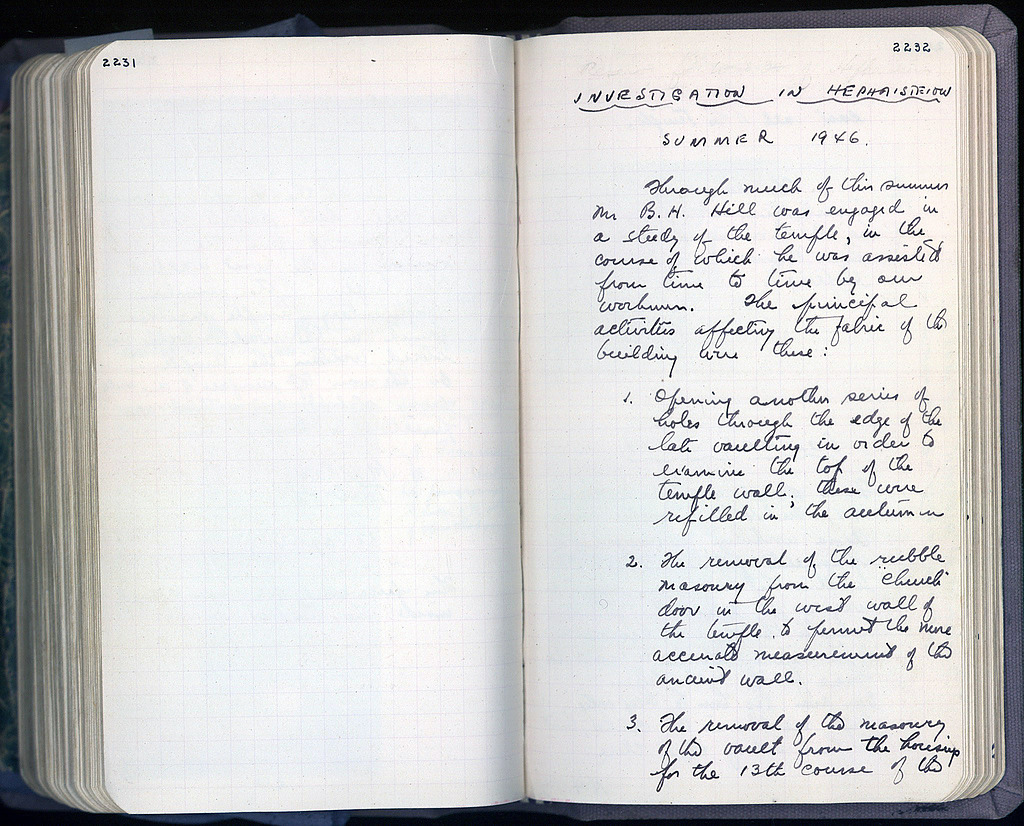 2231
2232
INVESTIGATION IN HEPHAISTEION
SUMMER 1946.
Through much of this summer
Mr B.H. Hill was engaged in
a study of the temple, in the
course of which he was assisted
from time to time by our
workmen. The principal
activities affecting the fabric of the
building were these:
1. Opening another series of
holes through the edge of the
late vaulting in order to
examine the top of the
temple wall; these were
refilled in the autumn
2. The removal of the rubble
masonry from the "church"
door in the west wall of
the temple to permit the more
accurate measurement of the
ancient wall.
3. The removal of the masonry
of the vault from the housing
for the 13th course of the